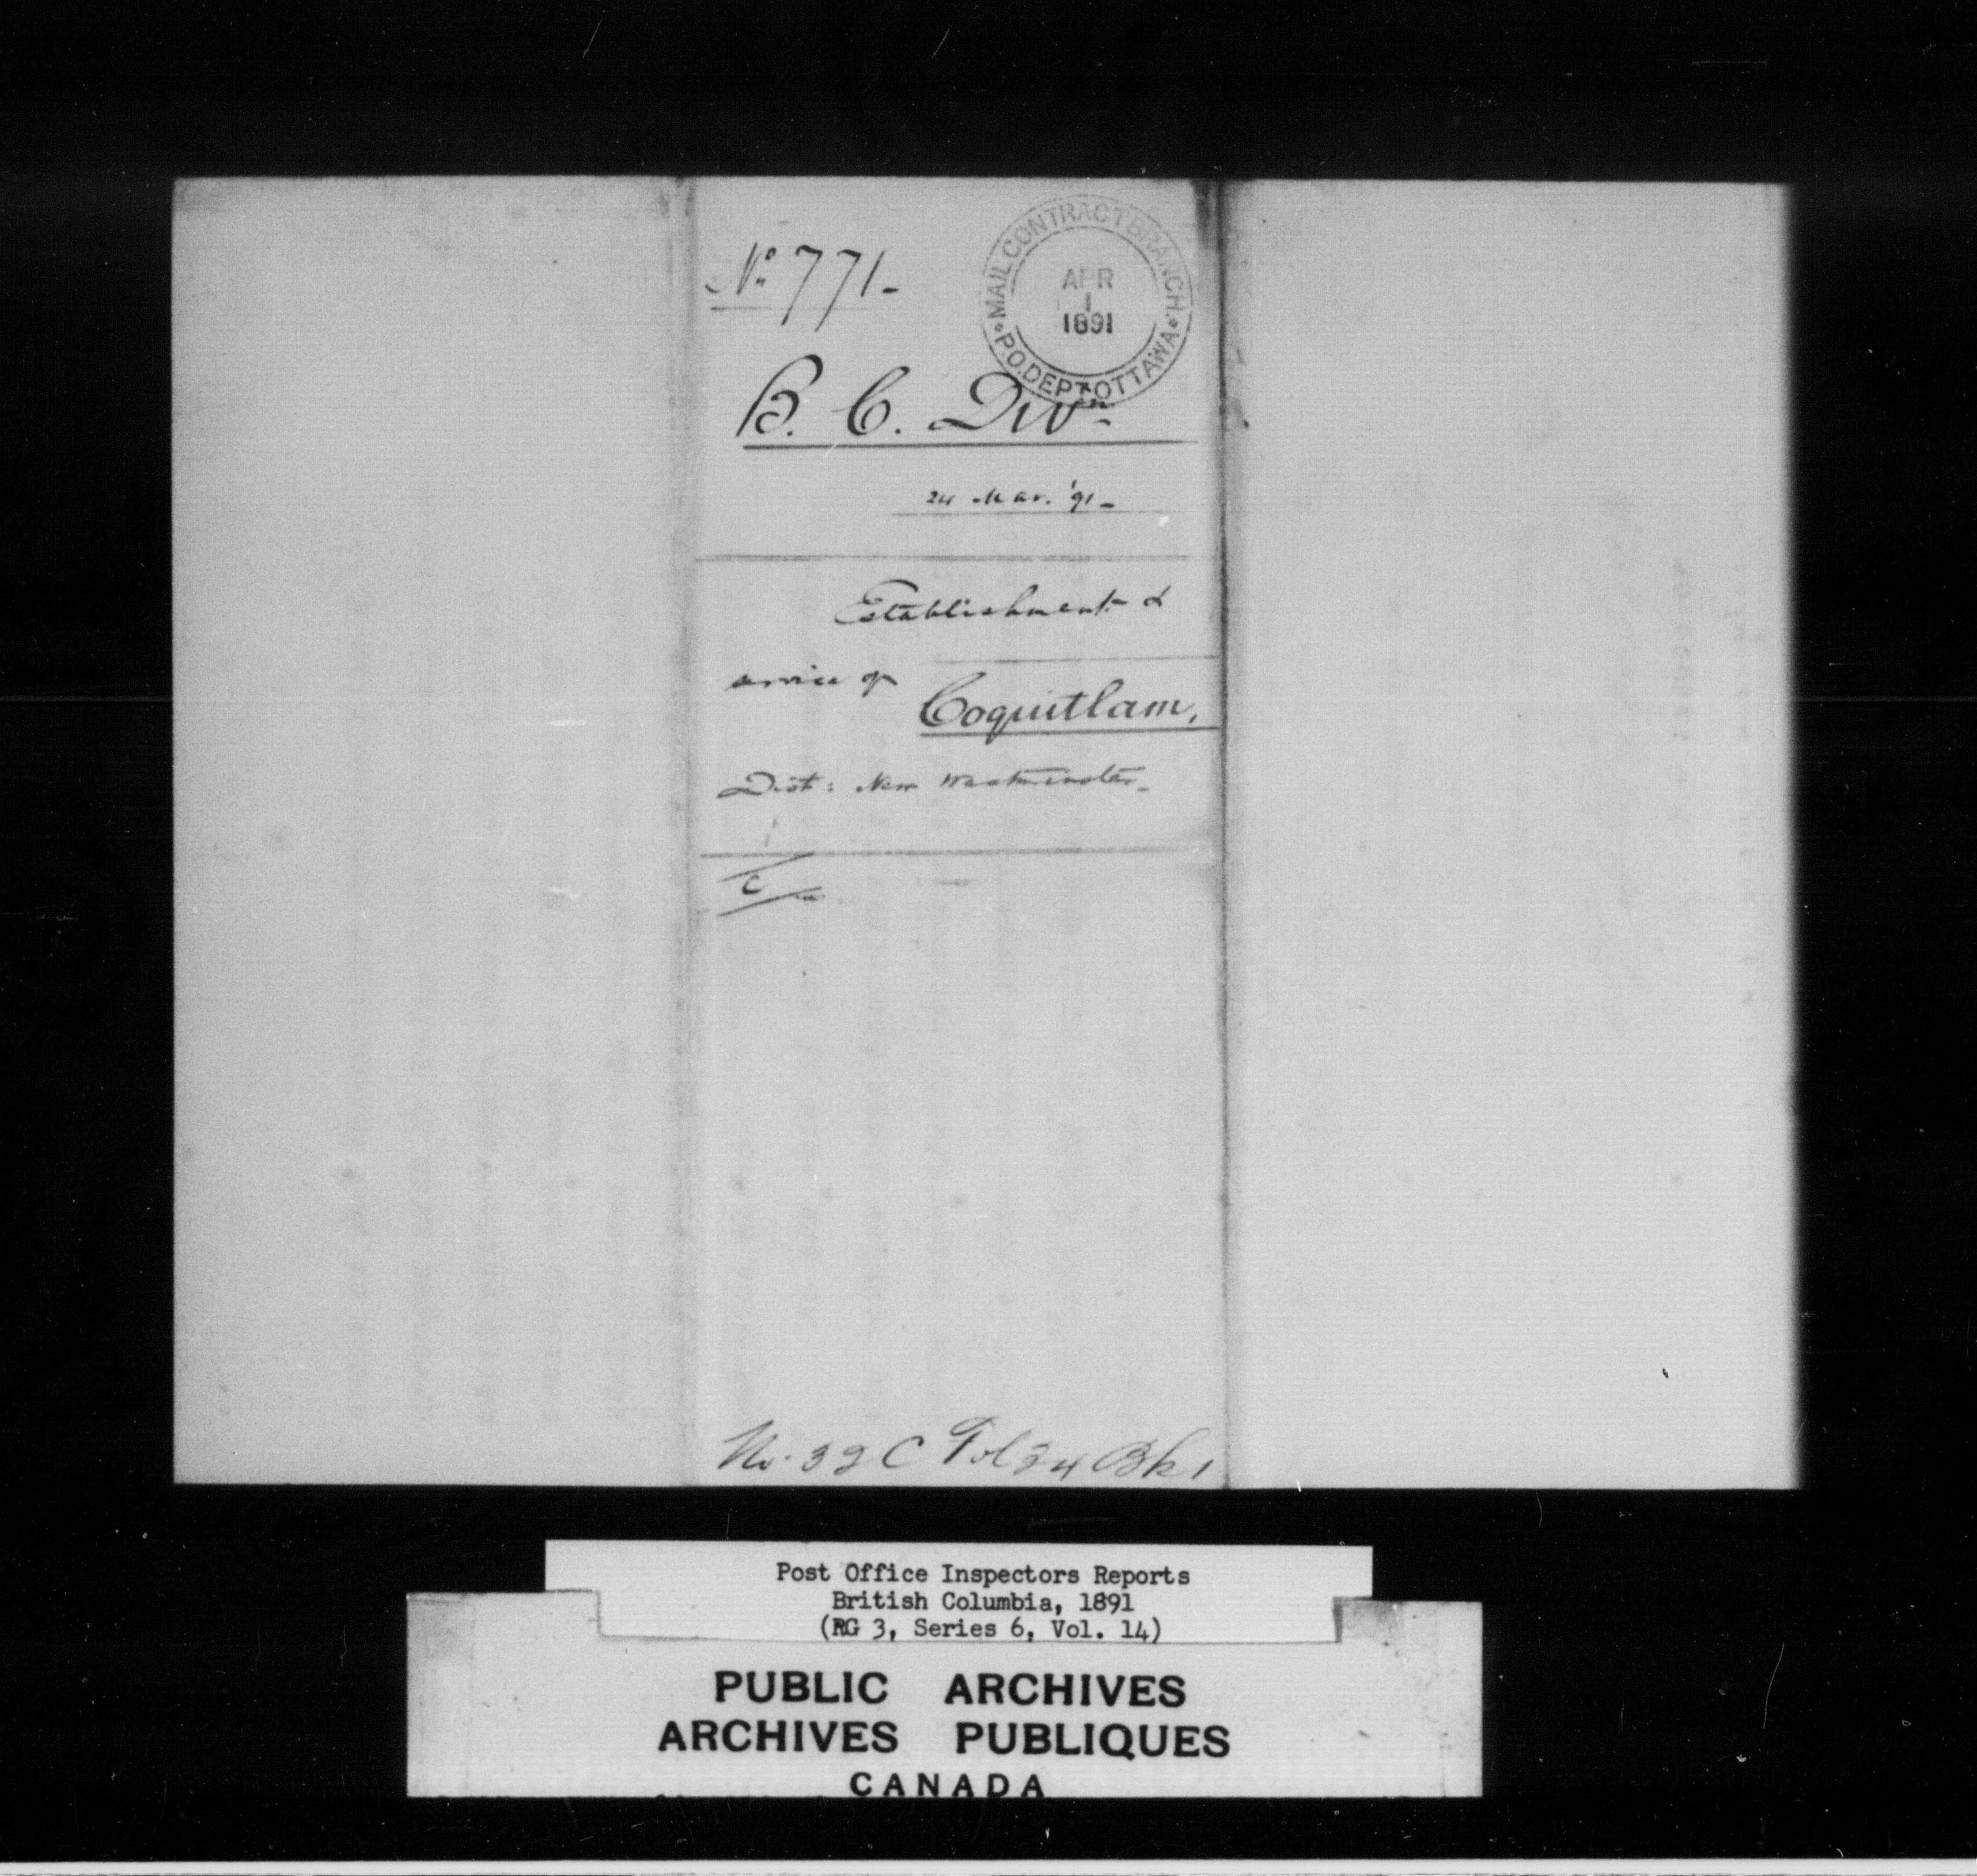 No 771-
MAIL CONTRACT BRANCH
APR
1
1891
P.O. DEPT OTTAWA
B. C. Divn.
24 Mar. '91-
Establishment &
service of
Coquitlam,
Dist: New Westminster.
C
No. 32 C Fol 34 Bk 1
Post Office Inspectors Reports
British Columbia, 1891
(RG 3, Series 6, Vol. 14)
PUBLIC ARCHIVES
ARCHIVES PUBLIQUES
CANADA